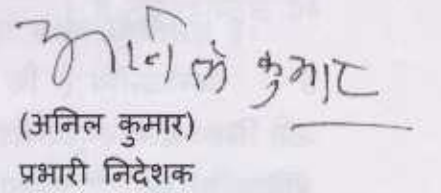 अनिल कुमार
(अनिल कुमार)
प्रभारी निदेशक